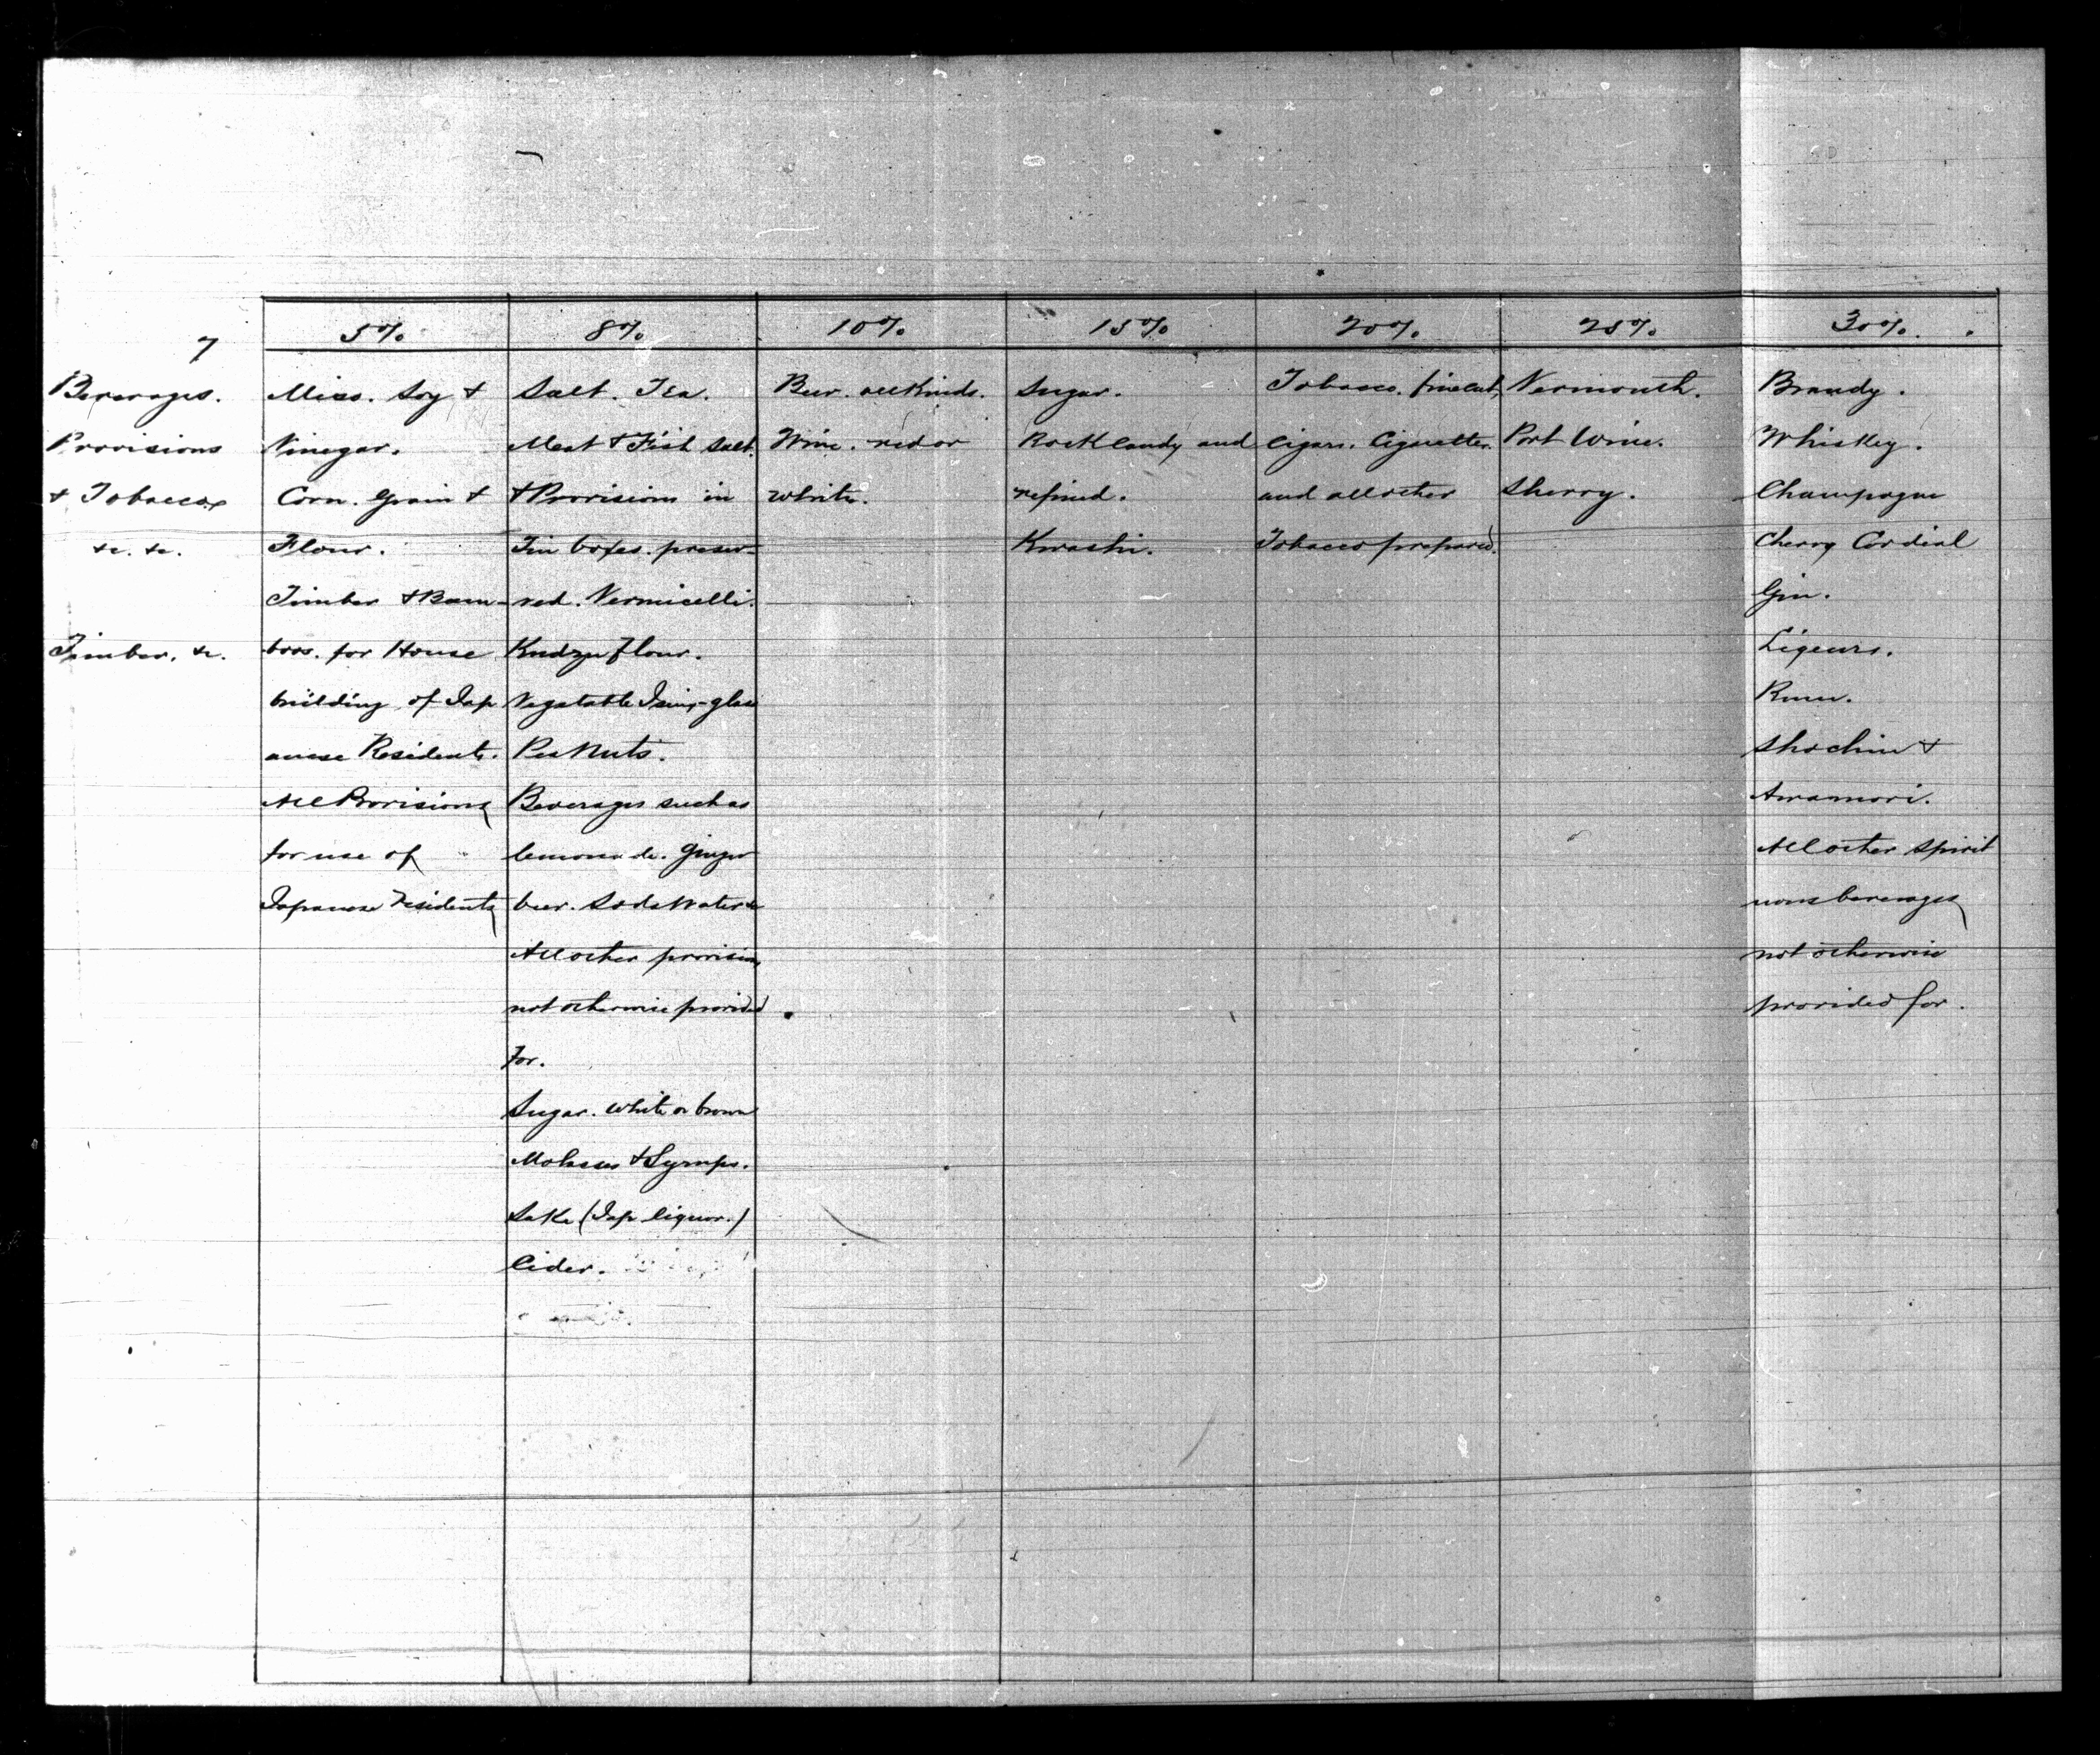 7
Beverages.
Provisions
& Tobaccos
&c. &c.
Timber. &c.
5%
Miso. Soy &
Vinegar.
Corn. Grain &
Flour.
Timber & Bam-
boos. for House
building of Jap
anese Residents.
All Provisions
for use of
Japanese residents
8%
Salt. Tea.
Meat & Fish salt.
& Provisions in
Tin boxes. preser-
ved. Vermicelli.
Kudzu flour.
Vegetable Ising-glass
Pea Nuts.
Beverages such as
lemonade. Ginger
beer. Soda Water &c
All other provisions
not otherwise provided
for.
Sugar. White or brown
Molasses & Syrups.
Sake (Jap liquor.)
Cider.
10%
Beer. all Kinds.
Wine. red or
white.
15%
Sugar.
Rock Candy and
refined.
Kwashi.
20%
Tobacco. fine cut,
Cigars. Cigarettes.
and all other
Tobacco prepared.
25%
Vermouth.
Port Wine.
Sherry.
30%.
Brandy.
Whiskey.
Champagne
Cherry Cordial
Gin.
Liqeurs.
Rum.
Shochiu &
Awamori.
All other spirit
uous beverages
not otherwise
provided for.